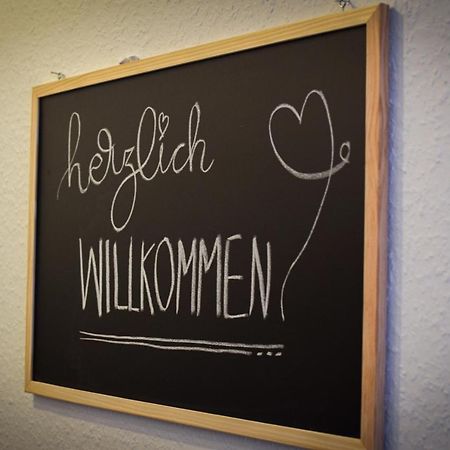 herzlich
WILLKOMMEN